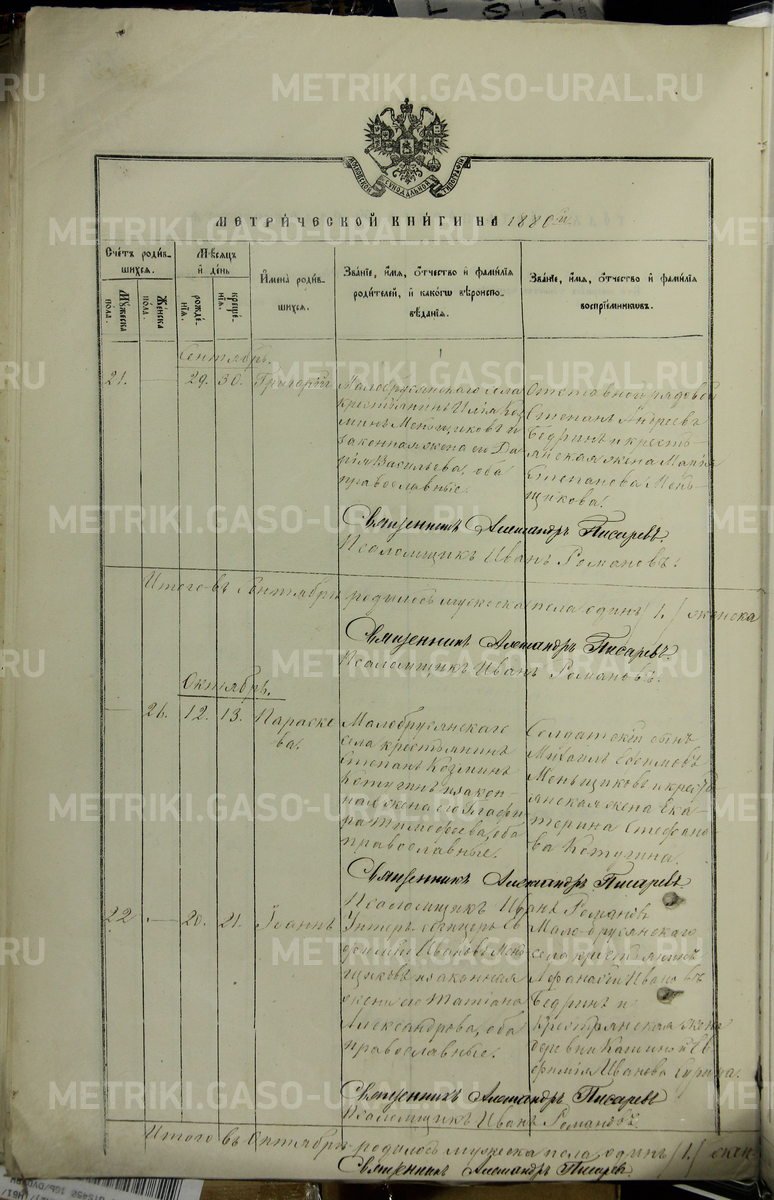 МОСКОВСКОЙ СУНОДАЛЬНОЙ ТИПОГРАФІИ
МЕТРИ́ЧЕСКОЙ КНИ́ГИ НА 1880й
Сче́тъ роди́в-
шихся.
Мѣсяцъ
и҆ де́нь
И҆мена̀ роди́в-
шихся.
Зва́нїе, и҆́мя, ѻ҆́тчество и҆ фами́лїя
роди́телей, и҆ како́гѡ вѣроиспо-
вѣ́данїя.
Зва́нїе, и҆́мя, ѻ҆́тчество и҆ фами́лїя
воспрїе́мниковъ.
Му́жеска по́ла.
Же́нска по́ла.
рожде́нїя.
креще́нїя.
Сентябрь.
21. — 29. 30. Григорій
Малобрусянскаго села
крестьянинъ Илія Коз
минъ Меньщиковъ и
законная жена его Да
рія Васильева, оба
православные.
Отставной рядовой
Степанъ Андреевъ
Бедринъ и кресть-
янская жена Марія
Степанова Мень-
щикова.
Священникъ Александръ Писаревъ.
Псаломщикъ Иванъ Романовъ.
Итого въ Сентябрѣ родилось мужеска пола одинъ /1./ женска
Священникъ Александръ Писаревъ.
Псаломщикъ Иванъ Романовъ.
Октябрь.
— 26. 12. 13. Параске
ва.
Малобрусянскаго
села крестьянинъ
Степанъ Козминъ
Котугинъ и закон-
ная жена его Глафи
ра Тимофеева, оба
православные.
Солдатскій сынъ
Михаилъ Ефимовъ
Меньщиковъ и крестъ
янская жена Ека-
терина Стефано
ва Котугина.
Священникъ Александръ Писаревъ
Псаломщикъ Иванъ Романов
22 — 20. 21. Іоаннъ
Унтеръ-офицеръ Ев
фимій Ивановъ Мень
щиковъ и законная
жена его Татіана
Александрова, оба
православные.
Мало-брусянскаго
села крестьянинъ
Афанасій Ивановъ
Бедринъ и
крестьянская жена
деревни Кашиной Ев
фимія Иванова
Священникъ Александръ Писаревъ
Псаломщикъ Иванъ Романовъ.
Итого въ Октябрѣ родилось мужеска пола одинъ /1./ жен-
Священникъ Александръ Писаревъ
METRIKI.GASO-URAL.RU